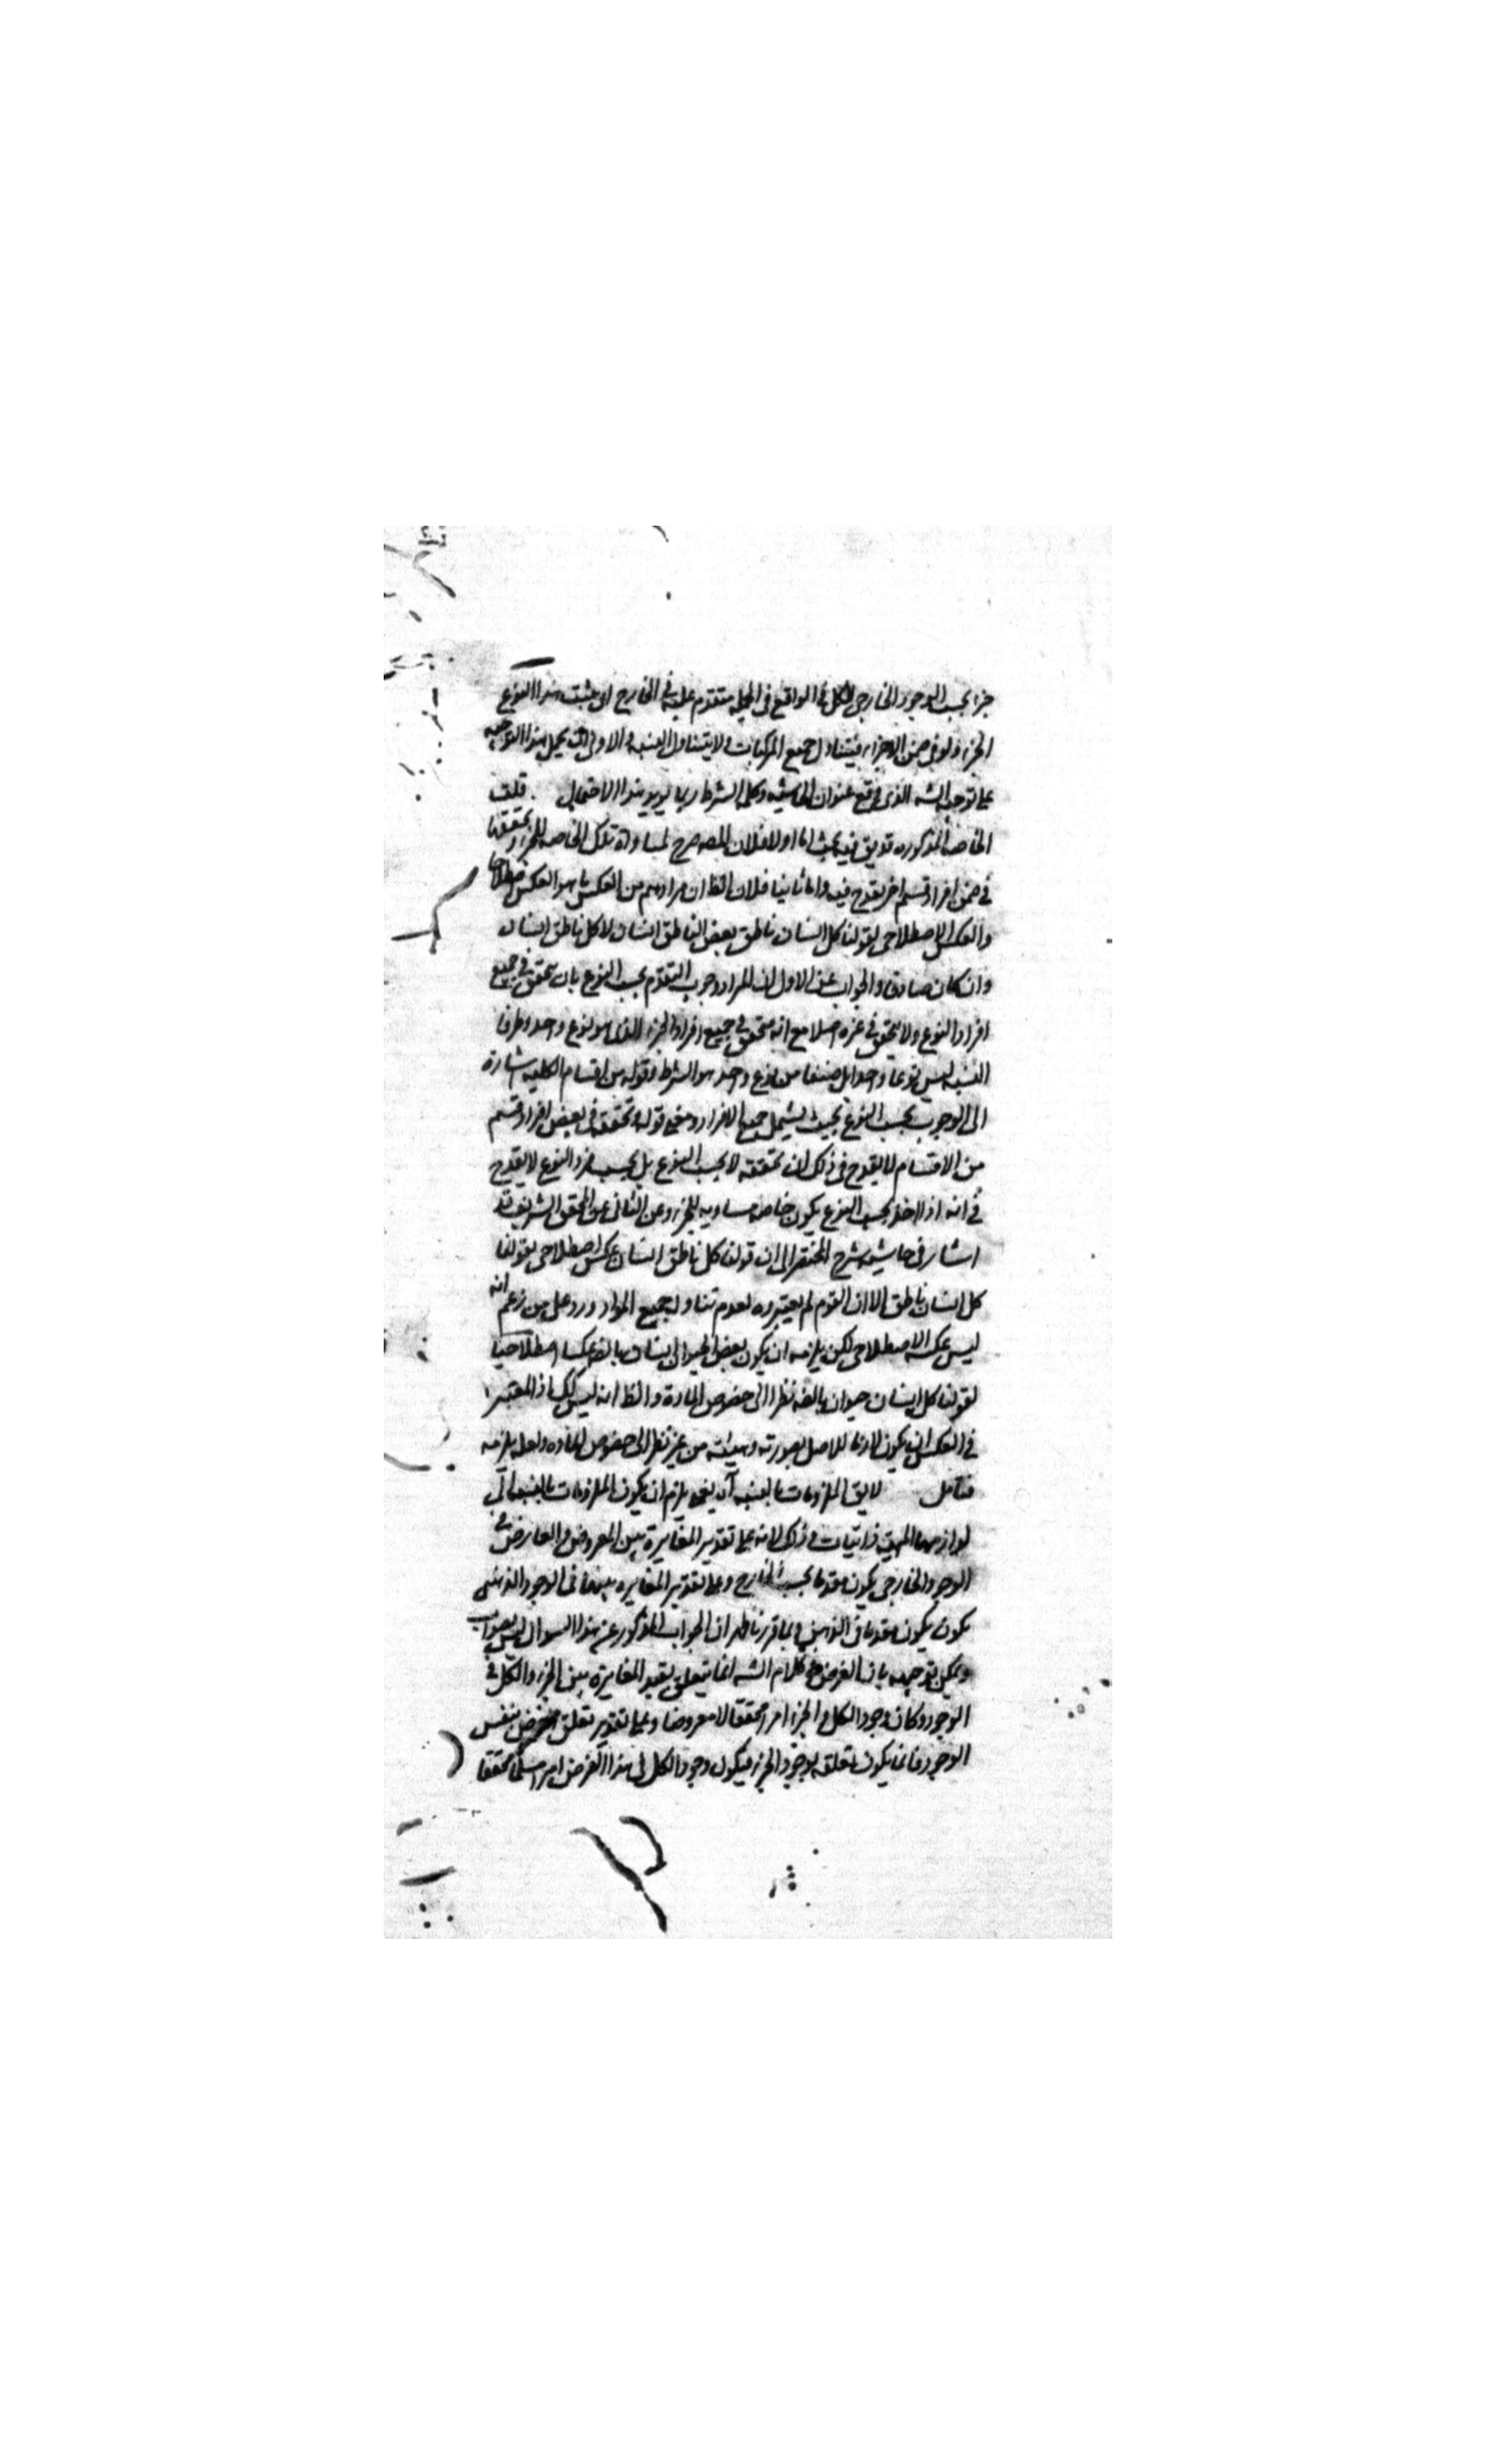 جزء بحسب الوجود الخارجى للكل فى الواقع فى الجملة متقدم عليه فى الخارج اى يثبت هذا النوع
الجزء ولو فى ضمن الاجزاء فيتناول جميع المركبات ولا يتناول النسبة الاولى يحمل هذا التوجيه
على توجيه الشه الذى وقع عنوان الحاشيه وكلمة الشرط ربما يؤيد هذا الاحتمال . قلت
الخاصه المذكوره قد بقى فيه بحث اما اولا فلان المصه صرح لمساواة تلك الخاصه للجزء وتحققها
فى ضمن افراد قسم اخر يقدح فيه واما ثانيا فلان الظ ان مرادهم من العكس ما هو العكس اصطلاحا
والعكس الاصطلاحى لقولنا كل انسان ناطق بعض الناطق انسان لا كل ناطق انسان
وان كان صادقا والجواب عن الاول ان المراد وجوب التقدم بحسب النوع بان يتحقق فى جميع
افراد النوع ولا يتحقق فى غيره اصلا مع انه متحقق فى جميع افراد الجزء الذى هو نوع واحد وطرفا
النسبه ليس نوعا واحدا بل صنفا من نوع واحد هو الشرط وقوله من اقسام الكليه اشارة
الى الوجوب بحسب النوع بحيث يشمل جميع الافراد ومعنى قوله وتحققه فى بعض افراد قسم
من الاقسام لا يقدح فى ذلك ان تحققه لا بحسب النوع بل بحسب فرد النوع لا يقدح
فى انه اذا اخذ بحسب النوع يكون خاصه مساويه للجزء وعن الثانى ان المحقق الشريف قد
اشار فى حاشيه شرح المختصر الى ان قولنا كل ناطق انسان عكس اصطلاحى لقولنا
كل انسان ناطق الا ان القوم لم يعتبروه لعدم تناوله جميع المواد ورد على من زعم انه
ليس عكسه الاصطلاحى لكن يلزمه ان يكون بعض الحيوان انسان بالضه عكسا اصطلاحيا
لقولنا كل انسان حيوان بالضه نظرا الى خصوص المادة والظ انه ليس كك اذ المعتبر
فى العكس ان يكون لازما للاصل بصورته وهيئته من غير نظر الى خصوص الماده ولعله يلزمه
فتامل لا يق الملزومات بالنسبه آه يعنى يلزم ان يكون الملزومات بالنسبة الى
لوازمها المهية ذاتيات وذلك لانه على تقدير المغايرة بين المعروض والعارض فى
الوجود الخارجى يكون مقدما بحسب الخارج وعلى تقدير المغايره بينهما فى الوجود الذهنى
يكون يكون مقدما فى الذهن وبما قررنا ظهر ان الجواب المذكور عن هذا السوال ليس بصواب
ويمكن توجيهه بان الغرض من كلام الشه انما يتعلق بقيد المغايرة بين الجزء والكل فى
الوجود وكان وجود الكل والجزء امرا محققا لا معروضا وعلى تقدير تعلق الغرض بنفس
الوجود فانما يكون تعلقه بوجود الجزء فيكون وجود الكل فى هذا الغرض امرا مسلما محققا